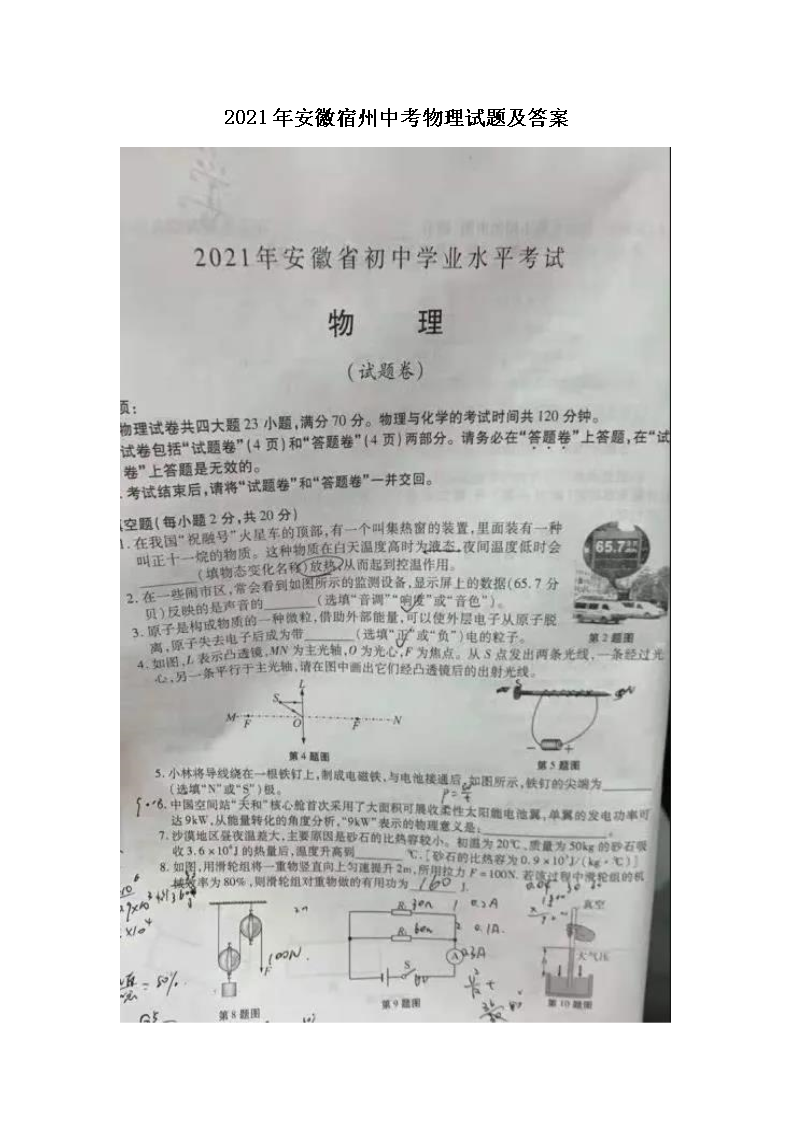 2021年安徽宿州中考物理试题及答案
2021年安徽省初中学业水平考试
物 理
(试题卷)
项:
物理试卷共四大题23小题,满分70分。物理与化学的考试时间共120分钟。
试卷包括“试题卷”(4页)和“答题卷”(4页)两部分。请务必在“答题卷”上答题,在“试
卷”上答题是无效的。
.考试结束后,请将“试题卷”和“答题卷”一并交回。
空题(每小题2分,共20分)
1.在我国“祝融号”火星车的顶部,有一个叫集热窗的装置,里面装有一种
叫正十一烷的物质。这种物质在白天温度高时为液态,夜间温度低时会
(填物态变化名称)放热,从而起到控温作用。
65.7
2.在一些闹市区,常会看到如图所示的监测设备,显示屏上的数据(65.7分
贝)反映的是声音的________(选填“音调”“响度”或“音色”)。
3.原子是构成物质的一种微粒,借助外部能量,可以使外层电子从原子脱
离,原子失去电子后成为带________(选填“正”或“负”)电的粒子。
第2题图
4.如图,L表示凸透镜,MN为主光轴,O为光心,F为焦点。从S点发出两条光线,一条经过光
心,另一条平行于主光轴,请在图中画出它们经凸透镜后的出射光线。
L
S
M F O F N
S N
- +
第4题图
第5题图
5.小林将导线绕在一根铁钉上,制成电磁铁,与电池接通后,如图所示,铁钉的尖端为________
(选填“N”或“S”)极。
6.中国空间站“天和”核心舱首次采用了大面积可展收柔性太阳能电池翼,单翼的发电功率可
达9kW,从能量转化的角度分析,“9kW”表示的物理意义是:________。
7.沙漠地区昼夜温差大,主要原因是砂石的比热容较小。初温为20℃、质量为50kg的砂石吸
收3.6×10⁵J的热量后,温度升高到________℃.[砂石的比热容为0.9×10³J/(kg·℃)]
8.如图,用滑轮组将一重物竖直向上匀速提升2m,所用拉力F=100N.若该过程中滑轮组的机
械效率为80%,则滑轮组对重物做的有用功为 160 J.
2m
100N
F
R₁ 30Ω 0.2A
R₂ 60Ω 0.1A
A 0.3A
S
真空
大气压
h
第8题图
第9题图
第10题图